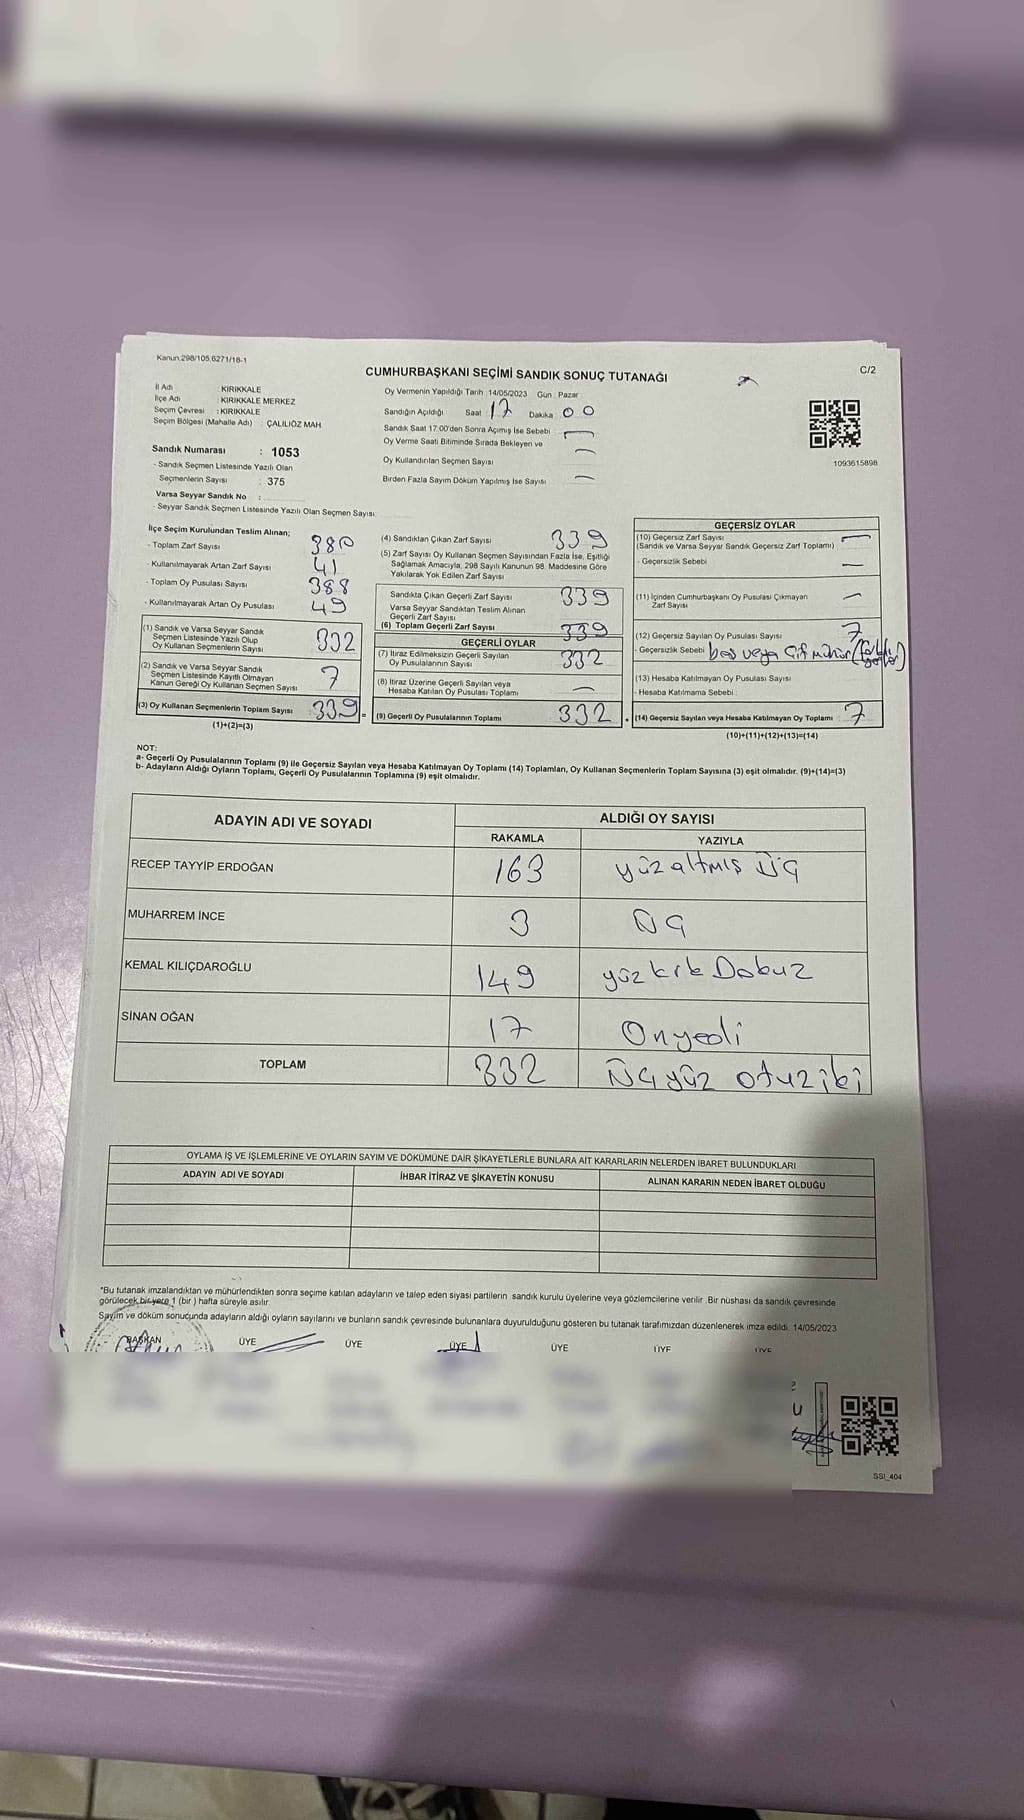 Kanun 298/105,6271/18-1
CUMHURBAŞKANI SEÇİMİ SANDIK SONUÇ TUTANAĞI
C/2
İl Adı : KIRIKKALE
İlçe Adı : KIRIKKALE MERKEZ
Seçim Çevresi : KIRIKKALE
Seçim Bölgesi (Mahalle Adı) : ÇALILIÖZ MAH.
Sandık Numarası : 1053
- Sandık Seçmen Listesinde Yazılı Olan
Seçmenlerin Sayısı : 375
Varsa Seyyar Sandık No :
- Seyyar Sandık Seçmen Listesinde Yazılı Olan Seçmen Sayısı:
Oy Vermenin Yapıldığı Tarih : 14/05/2023 Gün : Pazar
Sandığın Açıldığı Saat : 17 Dakika : 00
Sandık Saat 17:00'den Sonra Açılmış İse Sebebi : —
Oy Verme Saati Bitiminde Sırada Bekleyen ve
Oy Kullandırılan Seçmen Sayısı —
Birden Fazla Sayım Döküm Yapılmış İse Sayısı : —
1093615898
İlçe Seçim Kurulundan Teslim Alınan;
- Toplam Zarf Sayısı : 380
- Kullanılmayarak Artan Zarf Sayısı : 41
- Toplam Oy Pusulası Sayısı : 388
- Kullanılmayarak Artan Oy Pusulası : 49
(1) Sandık ve Varsa Seyyar Sandık
Seçmen Listesinde Yazılı Olup
Oy Kullanan Seçmenlerin Sayısı : 332
(2) Sandık ve Varsa Seyyar Sandık
Seçmen Listesinde Kayıtlı Olmayan
Kanun Gereği Oy Kullanan Seçmen Sayısı : 7
(3) Oy Kullanan Seçmenlerin Toplam Sayısı : 339 =
(1)+(2)=(3)
(4) Sandıktan Çıkan Zarf Sayısı : 339
(5) Zarf Sayısı Oy Kullanan Seçmen Sayısından Fazla İse, Eşitliği
Sağlamak Amacıyla, 298 Sayılı Kanunun 98. Maddesine Göre
Yakılarak Yok Edilen Zarf Sayısı
Sandıkta Çıkan Geçerli Zarf Sayısı : 339
Varsa Seyyar Sandıktan Teslim Alınan
Geçerli Zarf Sayısı
(6) Toplam Geçerli Zarf Sayısı : 339
GEÇERLİ OYLAR
(7) İtiraz Edilmeksizin Geçerli Sayılan
Oy Pusulalarının Sayısı : 332
(8) İtiraz Üzerine Geçerli Sayılan veya
Hesaba Katılan Oy Pusulası Toplamı : —
(9) Geçerli Oy Pusulalarının Toplamı : 332 +
GEÇERSİZ OYLAR
(10) Geçersiz Zarf Sayısı : —
(Sandık ve Varsa Seyyar Sandık Geçersiz Zarf Toplamı)
- Geçersizlik Sebebi : —
(11) İçinden Cumhurbaşkanı Oy Pusulası Çıkmayan
Zarf Sayısı : —
(12) Geçersiz Sayılan Oy Pusulası Sayısı : 7
- Geçersizlik Sebebi : boş veya çif mühür
(13) Hesaba Katılmayan Oy Pusulası Sayısı
- Hesaba Katılmama Sebebi :
(14) Geçersiz Sayılan veya Hesaba Katılmayan Oy Toplamı : 7
(10)+(11)+(12)+(13)=(14)
NOT:
a- Geçerli Oy Pusulalarının Toplamı (9) ile Geçersiz Sayılan veya Hesaba Katılmayan Oy Toplamı (14) Toplamları, Oy Kullanan Seçmenlerin Toplam Sayısına (3) eşit olmalıdır. (9)+(14)=(3)
b- Adayların Aldığı Oyların Toplamı, Geçerli Oy Pusulalarının Toplamına (9) eşit olmalıdır.
ADAYIN ADI VE SOYADI ALDIĞI OY SAYISI
RAKAMLA YAZIYLA
RECEP TAYYİP ERDOĞAN 163 yüzaltmış üç
MUHARREM İNCE 3 üç
KEMAL KILIÇDAROĞLU 149 yüz kırk Dokuz
SİNAN OĞAN 17 Onyedi
TOPLAM 332 Üçyüz otuziki
OYLAMA İŞ VE İŞLEMLERİNE VE OYLARIN SAYIM VE DÖKÜMÜNE DAİR ŞİKAYETLERLE BUNLARA AİT KARARLARIN NELERDEN İBARET BULUNDUKLARI
ADAYIN ADI VE SOYADI İHBAR İTİRAZ VE ŞİKAYETİN KONUSU ALINAN KARARIN NEDEN İBARET OLDUĞU
*Bu tutanak imzalandıktan ve mühürlendikten sonra seçime katılan adayların ve talep eden siyasi partilerin sandık kurulu üyelerine veya gözlemcilerine verilir. Bir nüshası da sandık çevresinde
görülecek bir yere 1 (bir) hafta süreyle asılır.
Sayım ve döküm sonucunda adayların aldığı oyların sayılarını ve bunların sandık çevresinde bulunanlara duyurulduğunu gösteren bu tutanak tarafımızdan düzenlenerek imza edildi. 14/05/2023
BAŞKAN ÜYE ÜYE ÜYE ÜYE ÜYE ÜYE
SSI_404